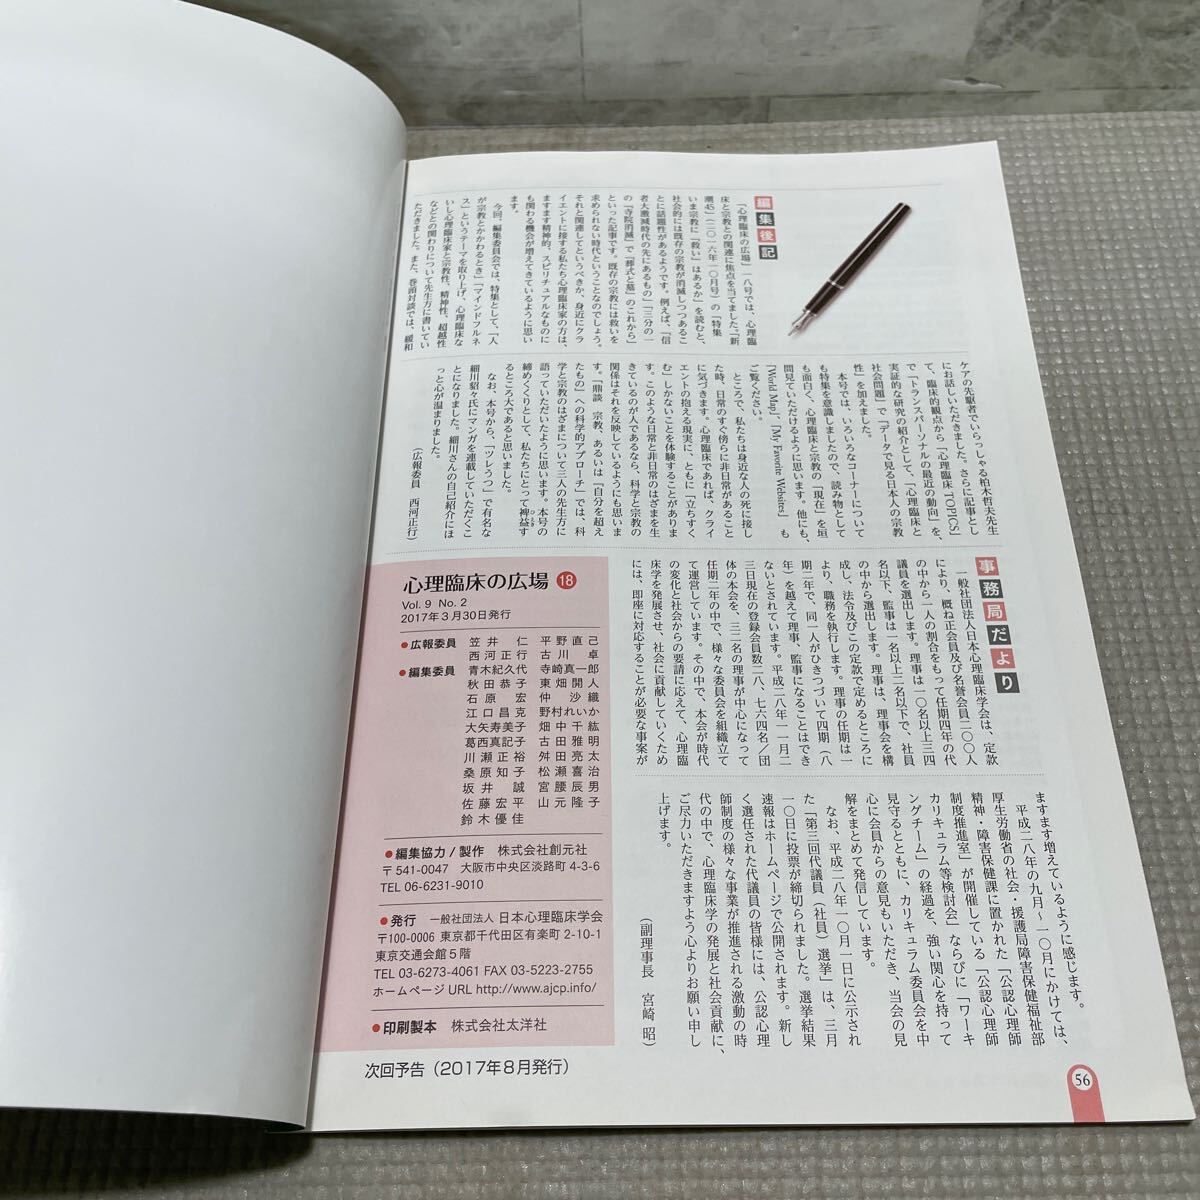 編集後記
「心理臨床の広場」一八号では、心理臨
床と宗教との関連に焦点を当てました。「新
潮45」(二〇一六年一〇月号)の「特集
いま宗教に「救い」はあるか」を読むと、
社会的には既存の宗教が消滅しつつあるこ
とに話題性があるようです。例えば、「信
者大激減時代の先にあるもの」「三分の一
の「寺院消滅」で「葬式と墓」のこれから」
といった記事です。既存の宗教には救いを
求められない時代ということなのでしょう。
それと関連してというべきか、身近にクラ
イエントに接する私たち心理臨床家の方は、
ますます精神的、スピリチュアルなものに
も関わる機会が増えてきているように思い
ます。
今回、編集委員会では、特集として、「人
が宗教とかかわるとき」「マインドフルネ
ス」というテーマを取り上げ、心理臨床な
いし心理臨床家と宗教性、精神性、超越性
などとの関わりについて先生方に書いてい
ただきました。また、巻頭対談では、緩和
ケアの先駆者でいらっしゃる柏木哲夫先生
にお話しいただきました。さらに記事とし
て、臨床的観点から「心理臨床TOPICS」
で「トランスパーソナルの最近の動向」を、
実証的な研究の紹介として、「心理臨床と
社会問題」で「データで見る日本人の宗教
性」を加えました。
本号では、いろいろなコーナーについて
も特集を意識しましたので、読み物として
も面白く、心理臨床と宗教の「現在」を垣
間見ていただけるように思います。他にも、
「World Map」、「My Favorite Websites」も
ご覧ください。
ところで、私たちは身近な人の死に接し
た時、日常のすぐ傍らに非日常があること
に気づきます。心理臨床であれば、クライ
エントの抱える現実に、ともに「立ちすく
む」しかないことを体験することがありま
す。このような日常と非日常のはざまを生
きているのが人であるなら、科学と宗教の
関係はそれを反映しているようにも思いま
す。「鼎談 宗教、あるいは「自分を超え
たもの」への科学的アプローチ」では、科
学と宗教のはざまについて三人の先生方に
語っていただいたように思います。本号の
締めくくりとして、私たちにとって裨益す
るところ大であると思いました。
なお、本号から、「ツレうつ」で有名な
細川貂々氏にマンガを連載していただくこ
とになりました。細川さんの自己紹介にほ
っと心が温まりました。
(広報委員 西河正行)
事務局だより
一般社団法人日本心理臨床学会は、定款
により、概ね正会員及び名誉会員二〇〇人
の中から一人の割合をもって任期四年の代
議員を選出します。理事は一〇名以上三四
名以下、監事は一名以上二名以下で、社員
の中から選出します。理事は、理事会を構
成し、法令及びこの定款で定めるところに
より、職務を執行します。理事の任期は一
期二年で、同一人がひきつづいて四期(八
年)を越えて理事、監事になることはでき
ないとされています。平成二八年一一月二
三日現在の登録会員数二八、七六四名/団
体の本会を、三二名の理事が中心になって
任期二年の中で、様々な委員会を組織立て
て運営しています。その中で、本会が時代
の変化と社会からの要請に応えて、心理臨
床学を発展させ、社会に貢献していくため
には、即座に対応することが必要な事案が
ますます増えているように感じます。
平成二八年の九月〜一〇月にかけては、
厚生労働省の社会・援護局障害保健福祉部
精神・障害保健課に置かれた「公認心理師
制度推進室」が開催している「公認心理師
カリキュラム等検討会」ならびに「ワーキ
ングチーム」の経過を、強い関心を持って
見守るとともに、カリキュラム委員会を中
心に会員からの意見もいただき、当会の見
解をまとめて発信しています。
なお、平成二八年一〇月一日に公示され
た「第三回代議員(社員)選挙」は、三月
一〇日に投票が締切られました。選挙結果
速報はホームページで公開されます。新し
く選任された代議員の皆様には、公認心理
師制度の様々な事業が推進される激動の時
代の中で、心理臨床学の発展と社会貢献に、
ご尽力いただきますよう心よりお願い申し
上げます。
(副理事長 宮崎 昭)
心理臨床の広場 18
Vol. 9 No. 2
2017年3月30日発行
●広報委員 笠井 仁 平野直己
西河正行 古川 卓
●編集委員 青木紀久代 寺崎真一郎
秋田恭子 東畑開人
石原 宏 仲 沙織
江口昌克 野村れいか
大矢寿美子 畑中千紘
葛西真記子 古田雅明
川瀬正裕 舛田亮太
桑原知子 松瀬喜治
坂井 誠 宮腰辰男
佐藤宏平 山元隆子
鈴木優佳
●編集協力/製作 株式会社創元社
〒541-0047 大阪市中央区淡路町 4-3-6
TEL 06-6231-9010
●発行 一般社団法人 日本心理臨床学会
〒100-0006 東京都千代田区有楽町 2-10-1
東京交通会館5階
TEL 03-6273-4061 FAX 03-5223-2755
ホームページ URL http://www.ajcp.info/
●印刷製本 株式会社太洋社
次回予告(2017年8月発行)
56